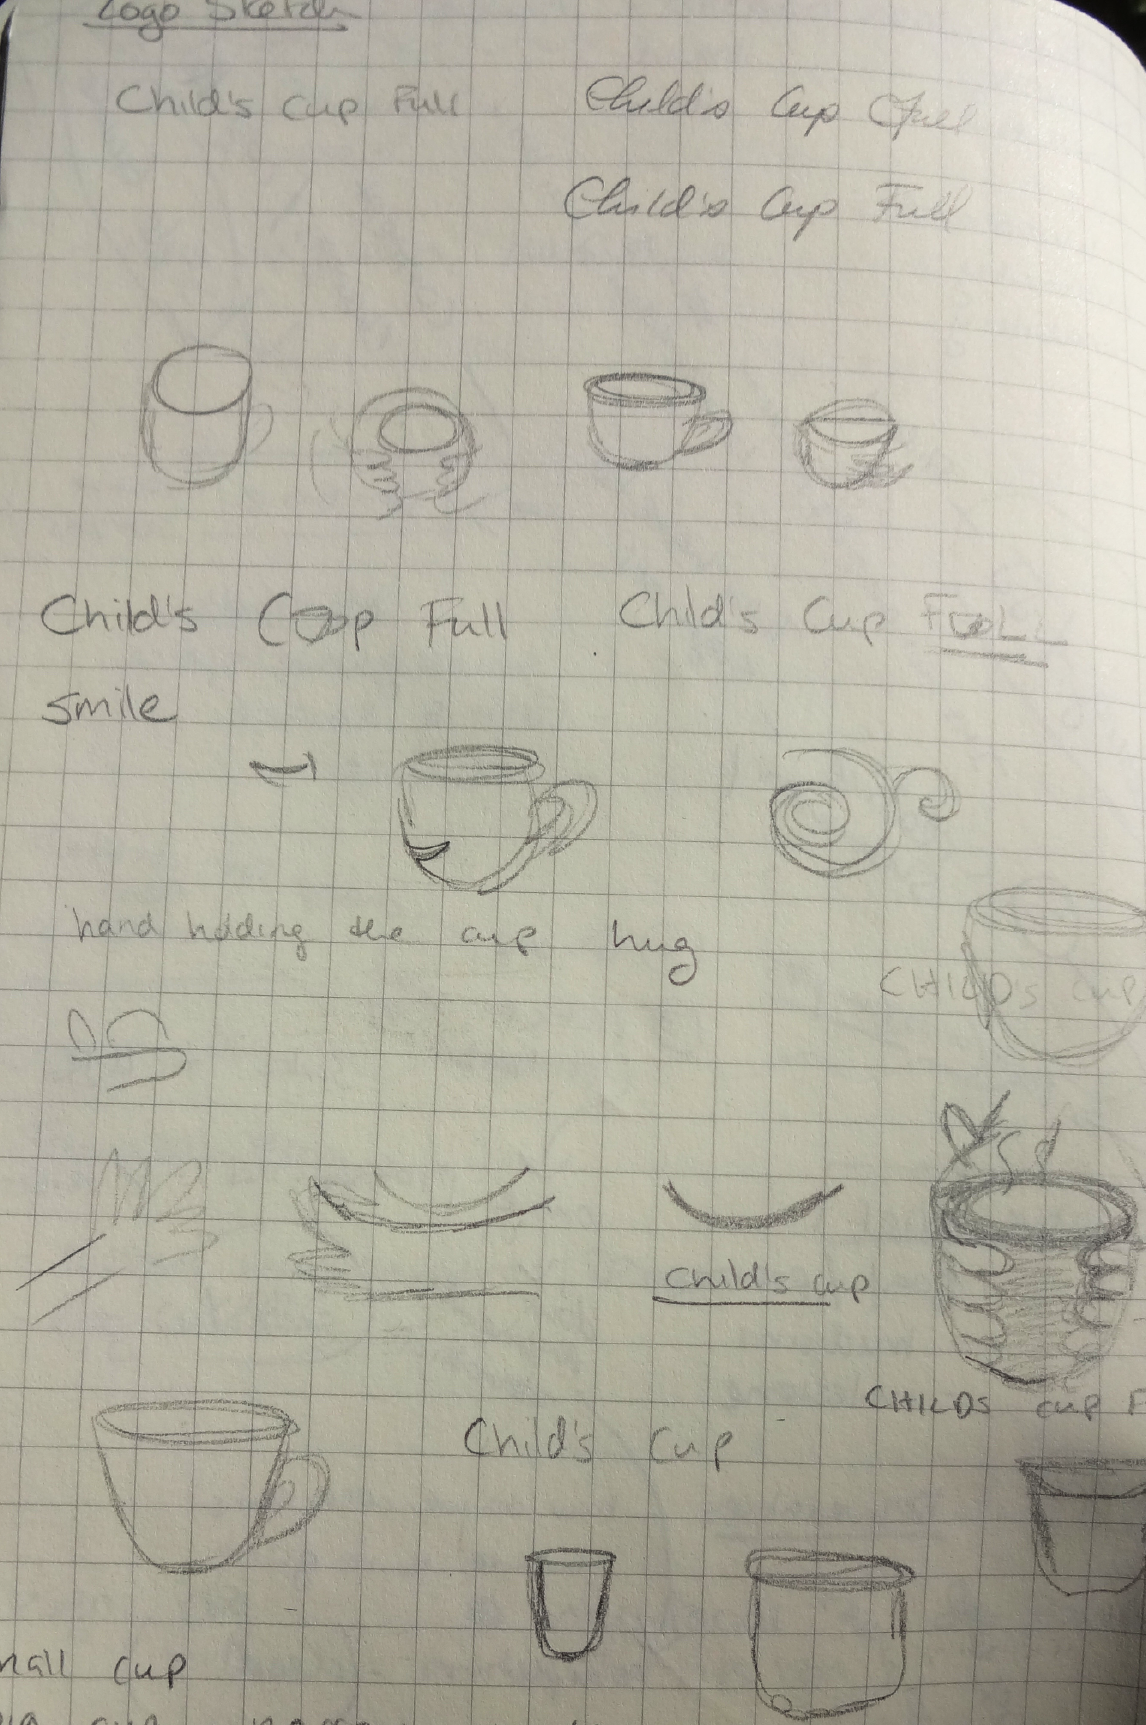 Logo Sketch
Child's Cup Full Child's Cup Full
Child's Cup Full
Child's Cup Full Child's Cup FULL
smile
hand holding the cup hug
CHILD's cup
Child's cup
CHILDS cup F
Child's Cup
mall cup
cup